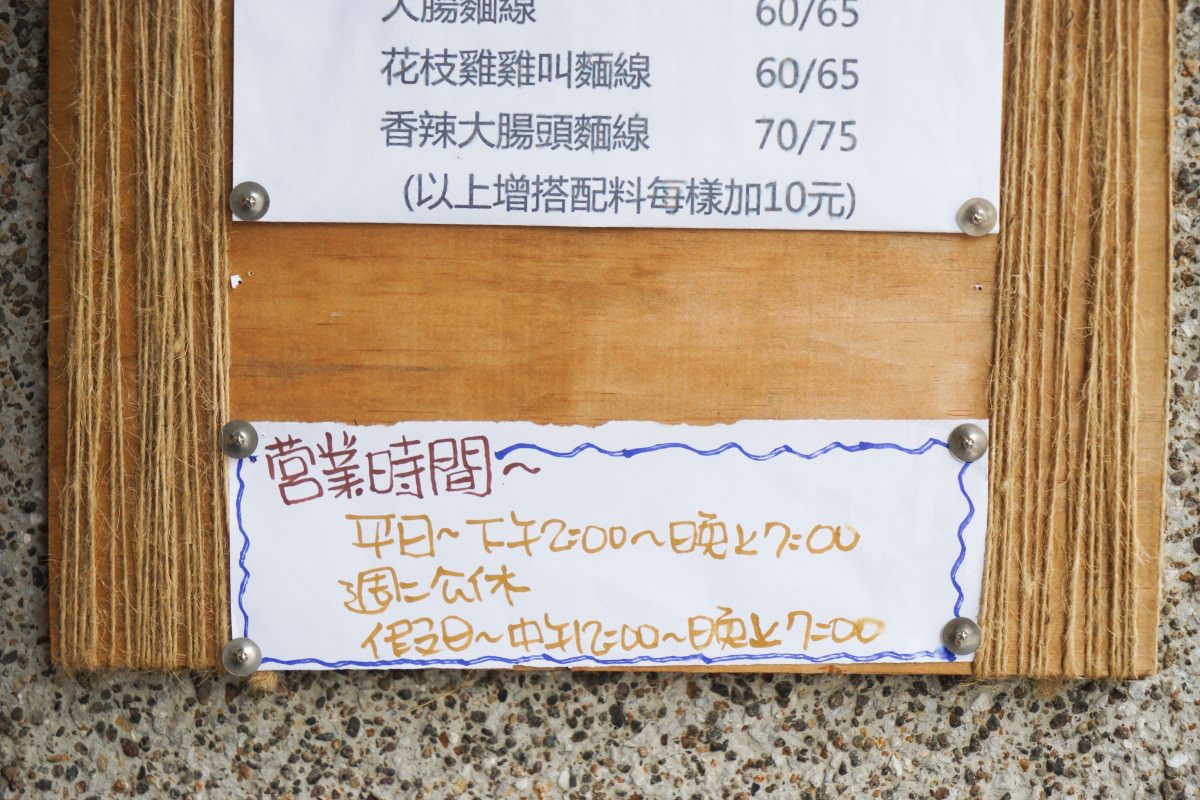 大腸麵線 60/65
花枝雞雞叫麵線 60/65
香辣大腸頭麵線 70/75
(以上增搭配料每樣加10元)
營業時間~
平日~下午2:00~晚上7:00
週二公休
假日~中午12:00~晚上7:00